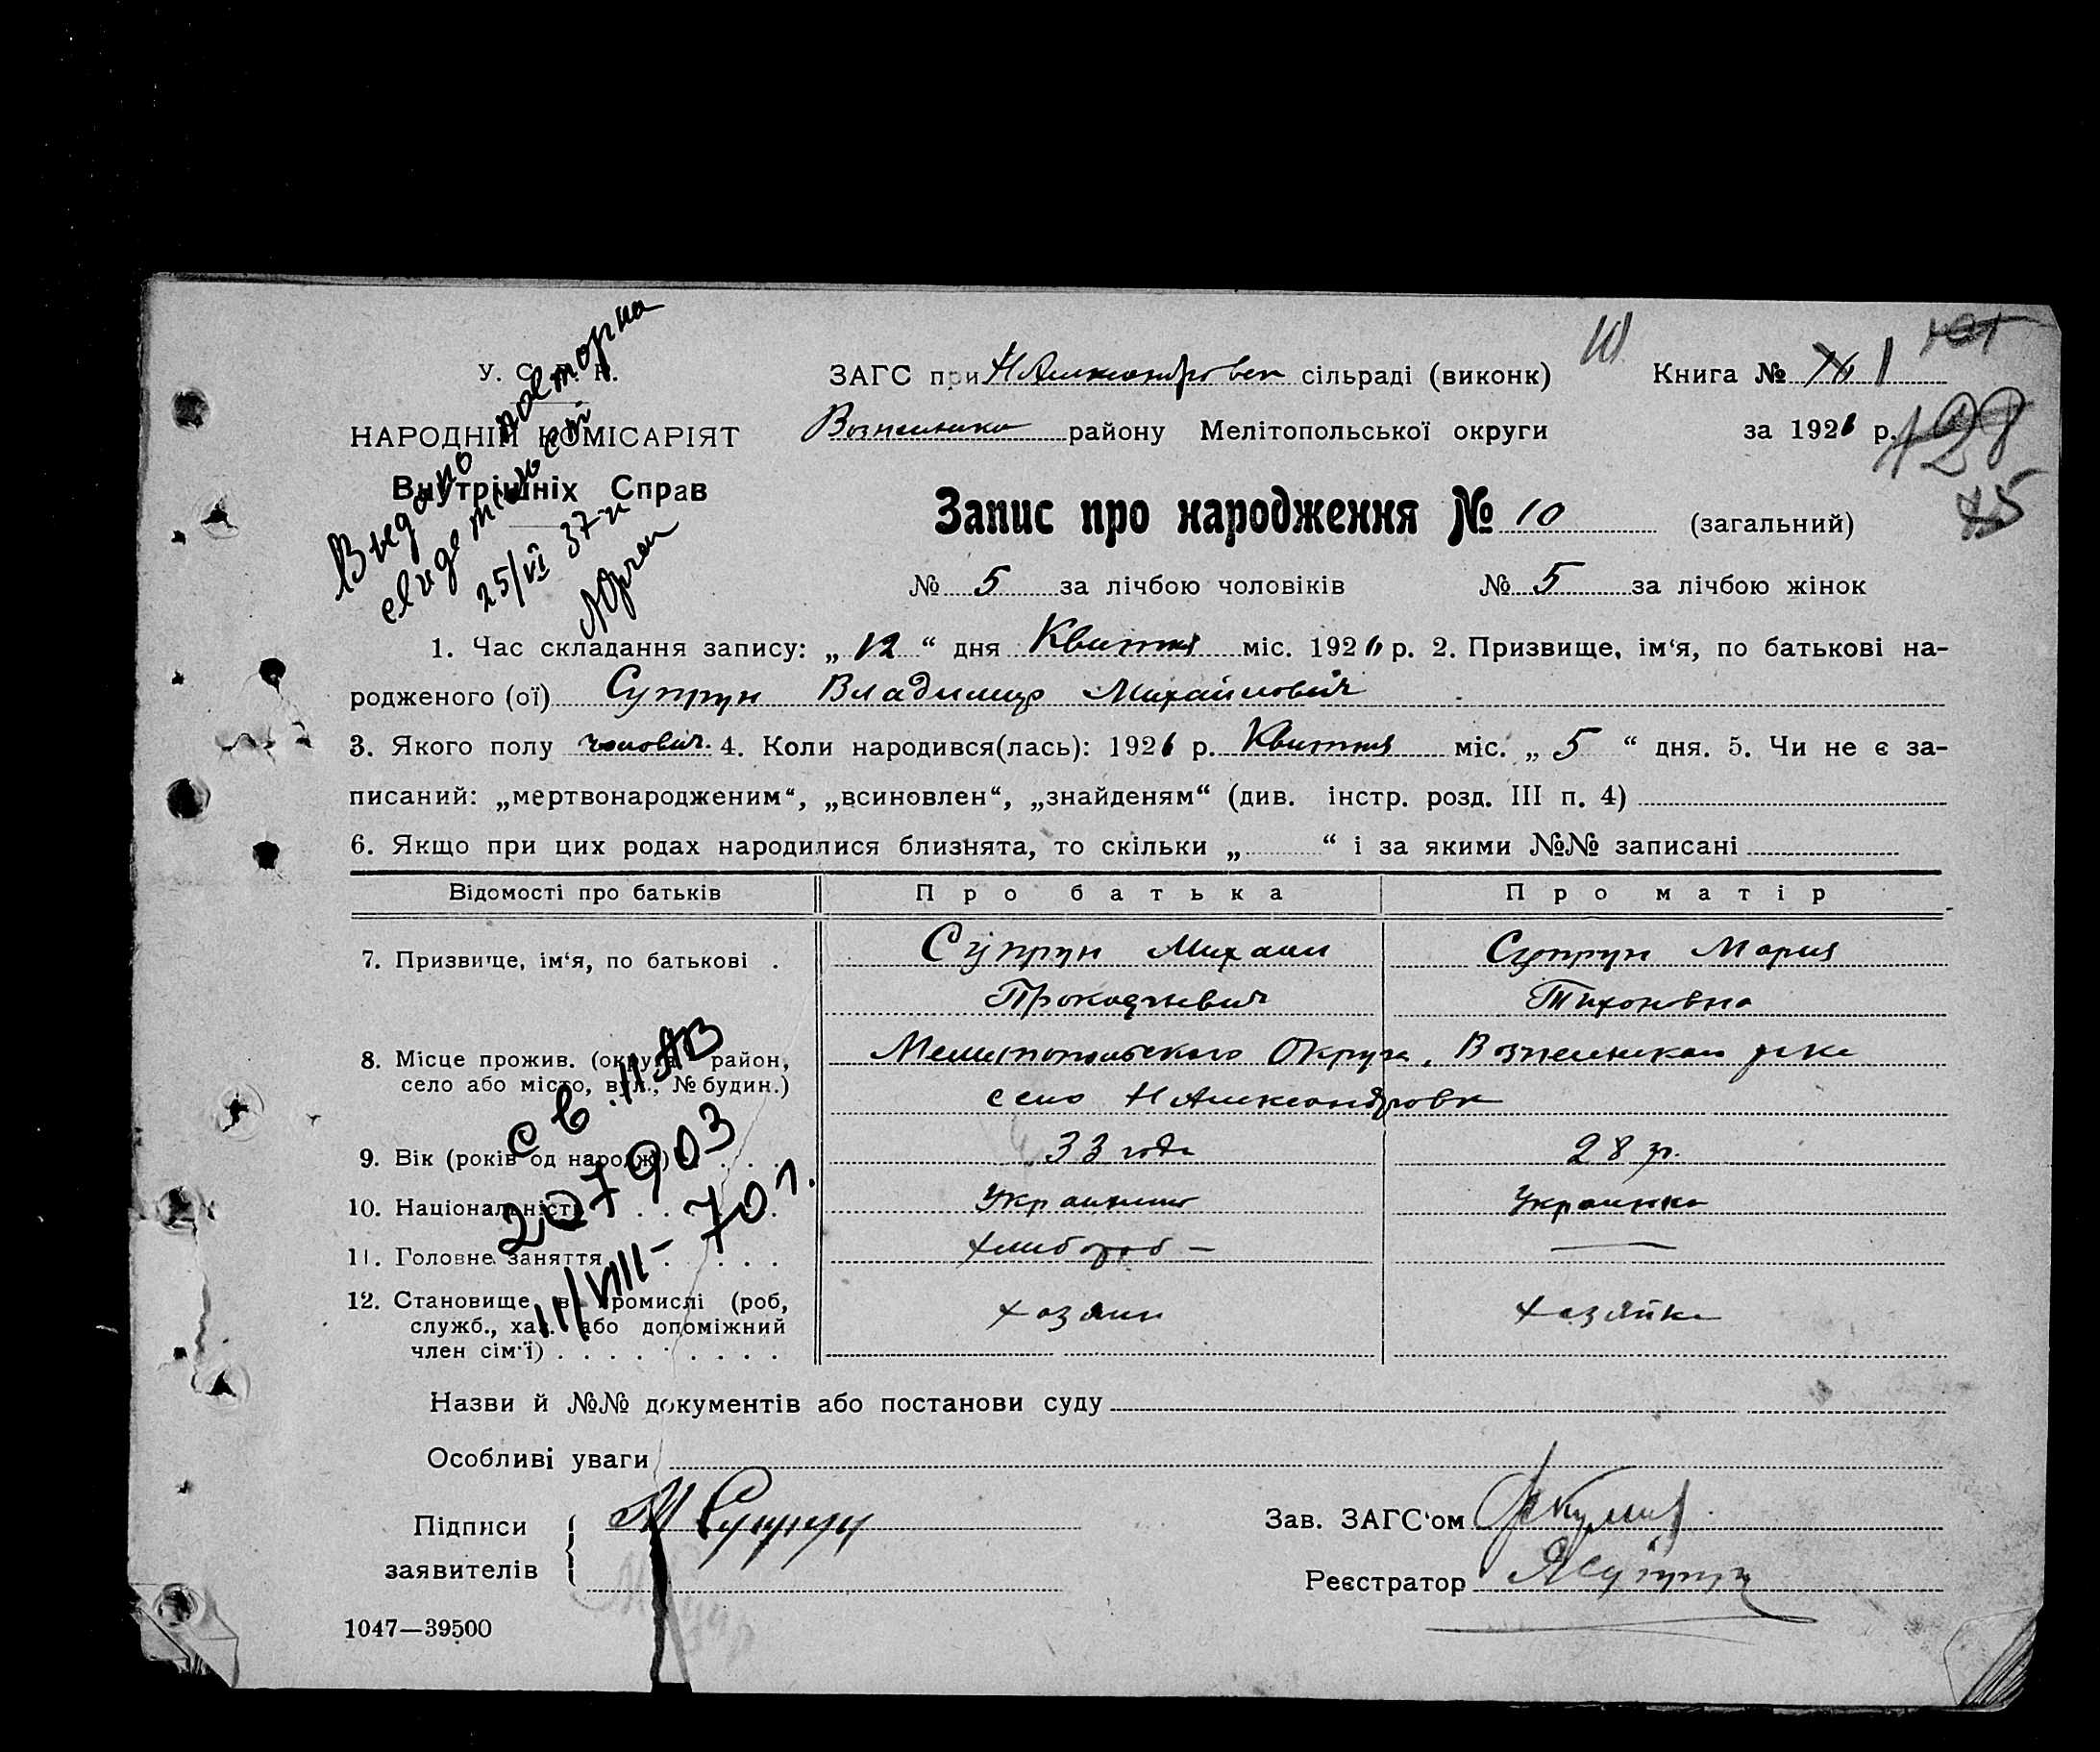 У. С. Р. Р.
НАРОДНІЙ КОМІСАРІЯТ
Внутрішніх Справ
ЗАГС при Н Александровск сільраді (виконк)
Книга № 1
района Мелітопольської округи
за 1926 р.
128
Запис про народження № 10 (загальний)
№ 5 за лічбою чоловіків № 5 за лічбою жінок
25/VI 37
1. Час складання запису: „ 12 “ дня Квитня міс. 1926 р. 2. Призвище, ім‘я, по батькові на-
родженого (ої) Супрун Владимир Михайлович
3. Якого полу чоловіч. 4. Коли народився(лась): 1926 р. Квитня міс. „ 5 “ дня. 5. Чи не є за-
писаний: „мертвонародженим“, „всиновлен“, „знайденям“ (див. інстр. розд. III п. 4)
6. Якщо при цих родах народилися близнята, то скільки „ “ і за якими №№ записані
Відомості про батьків Про батька Про матір
7. Призвище, ім‘я, по батькові . Супрун Михаил Супрун Мария
Тихоновна
8. Місце прожив. (округа, район, Мелитопольского Округа,
село або місто, вул., № будин.) село Н Александровка
св. II АВ
207903
11/VIII-70 г.
9. Вік (років од народж.) 33 года 28 л.
10. Національність Украинец Украинка
11. Головне заняття хлибороб —
12. Становище в промислі (роб, хозяин хозяйка
служб., хаз. або допоміжний
член сім‘ї)
Назви й №№ документів або постанови суду
Особливі уваги
Підписи М Супрун
заявителів
Зав. ЗАГС‘ом
Реєстратор
1047—39500